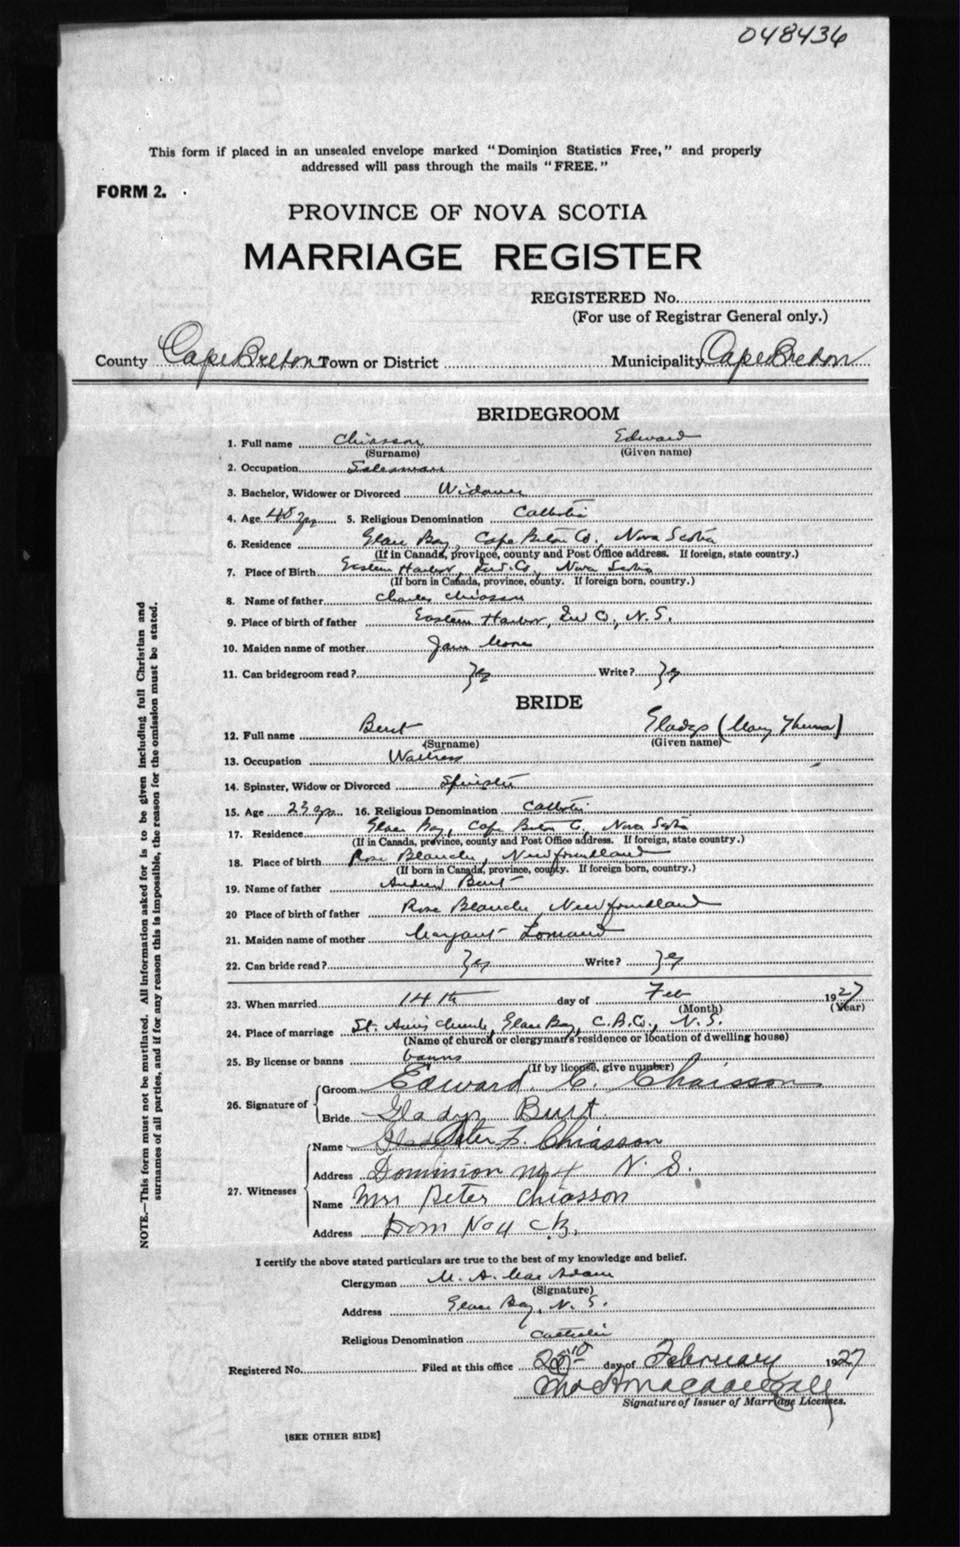 048436
This form if placed in an unsealed envelope marked "Dominion Statistics Free," and properly
addressed will pass through the mails "FREE."
FORM 2.
PROVINCE OF NOVA SCOTIA
MARRIAGE REGISTER
REGISTERED No.
(For use of Registrar General only.)
County Cape Breton Town or District Municipality Cape Breton
BRIDEGROOM
1. Full name Chiasson Edward
(Surname) (Given name)
2. Occupation Salesman
3. Bachelor, Widower or Divorced Widower
4. Age 48 yrs 5. Religious Denomination Catholic
6. Residence Glace Bay, Cape Breton Co., Nova Scotia
(If in Canada, province, county and Post Office address. If foreign, state country.)
7. Place of Birth Eastern Harbor, Inv. Co., Nova Scotia
(If born in Canada, province, county. If foreign born, country.)
8. Name of father Charles Chiasson
9. Place of birth of father Eastern Harbor, Inv Co., N.S.
10. Maiden name of mother Jane
11. Can bridegroom read? Yes Write? Yes
BRIDE
12. Full name Burt Gladys (Mary
(Surname) (Given name)
13. Occupation Waitress
14. Spinster, Widow or Divorced Spinster
15. Age 23 yrs 16. Religious Denomination Catholic
17. Residence Glace Bay, Cape Breton C., Nova Scotia
(If in Canada, province, county and Post Office address. If foreign, state country.)
18. Place of birth Rose Blanche, Newfoundland
(If born in Canada, province, county. If foreign born, country.)
19. Name of father Andrew Burt
20 Place of birth of father Rose Blanche, Newfoundland
21. Maiden name of mother Margaret
22. Can bride read? Yes Write? Yes
23. When married 14th day of Feb 1927
(Month) (Year)
24. Place of marriage St. Ann's Church, Glace Bay, C.B.Co., N.S.
(Name of church or clergyman's residence or location of dwelling house)
25. By license or banns banns
(If by license, give number)
26. Signature of Groom Edward C. Chaisson
Bride Gladys Burt
27. Witnesses Name Peter L. Chiasson
Address Dominion No 4 N.S.
Name Mrs Peter Chiasson
Address Dom No 4 C.B.
I certify the above stated particulars are true to the best of my knowledge and belief.
Clergyman M. A. MacAdam
(Signature)
Address Glace Bay, N.S.
Religious Denomination Catholic
Registered No. Filed at this office day of February 1927
Signature of Issuer of Marriage Licenses.
[SEE OTHER SIDE]
NOTE.—This form must not be mutilated. All information asked for is to be given including full Christian and
surnames of all parties, and if for any reason this is impossible, the reason for the omission must be stated.